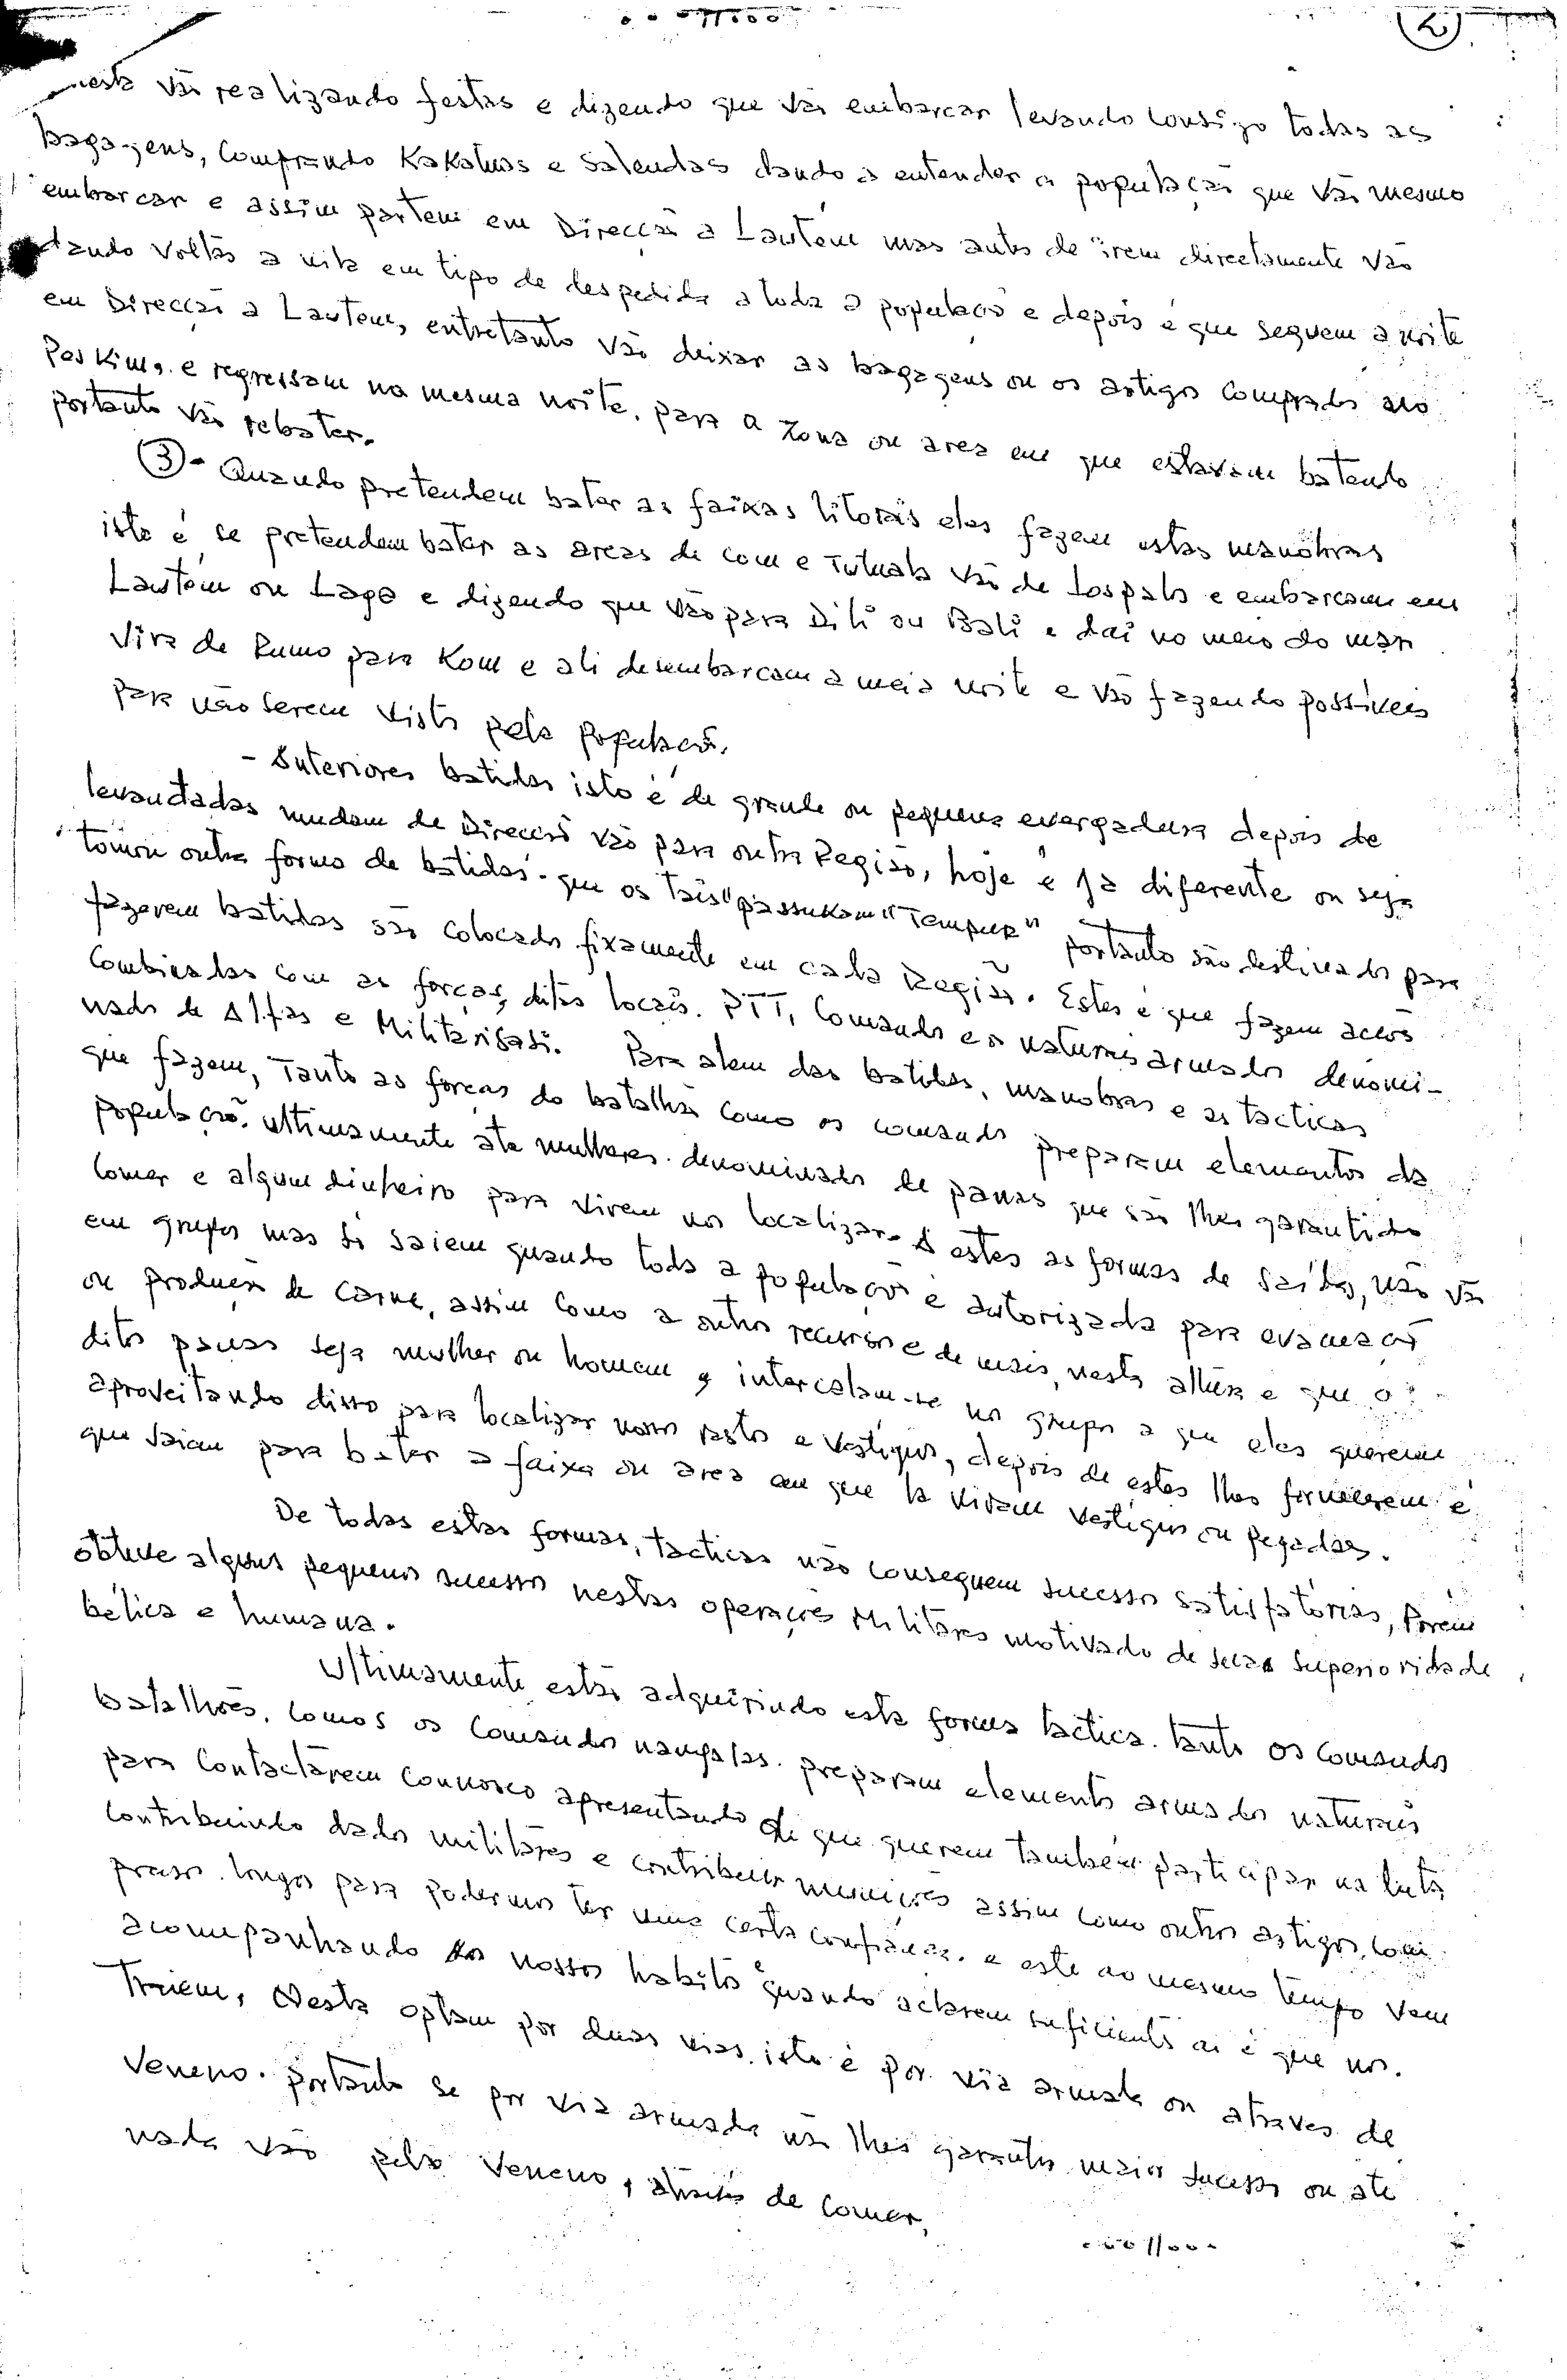 .. ..//ooo..
2
nesta vão realizando festas e dizendo que vão embarcar levando consigo todas as
bagagens, comprando Kakatuas e Salendas dando a entender a população que vão mesmo
embarcar e assim partem em Direcção a Lautem mas antes de irem directamente vão
dando voltas a vila em tipo de despedida a toda a população e depois é que seguem a noite
em Direcção a Lautem, entretanto vão deixar as bagagens ou os artigos comprados no
Poskim, e regressam na mesma noite, para a zona ou area em que estavam batendo
portanto vão rebater.
3- Quando pretendem bater as faixas litorais eles fazem estas manobras
isto é se pretendem bater as areas de com e Tutuala vão de Lospalos e embarcam em
Lautem ou Laga e dizendo que vão para Dili ou Bali e daí no meio do mar
vira de Rumo para Kom e ali desembarcam a meia noite e vão fazendo possíveis
para não serem vistos pela população.
- Interiores batidas isto é de grande ou pequena envergadura depois de
levantadas mudam de Direcção vão para outra Região, hoje é já diferente ou seja
tomou outra forma de batidas. que os tais "passukam" "Tempur" portanto são destinados para
fazerem batidas são colocados fixamente em cada Região. Estes é que fazem acções
combinadas com as forças, ditas locais. PTT, Comando e os naturais armados denomi-
nados de Alfas e Militarisasi. Para alem das batidas, manobras e as tacticas
que fazem, Tanto as forças do batalhão como os comando preparam elementos da
população, ultimamente até mulheres. denominados de pauas que são lhes garantido
comer e algum dinheiro para virem nos localizar. A estes as formas de saídas, não vão
em grupos mas só saiem quando toda a população é autorizada para
ou produção de carne, assim como a outros recursos e de mais, nesta altura é que os
ditos pauas seja mulher ou homem intercalam-se nos grupos a que eles querem
aproveitando disso para localizar nossos rastos e vestígios, depois de estes lhes fornecerem é
que saiem para bater a faixa ou area em que la viram vestígios ou pegadas.
De todas estas formas, tacticas não conseguem sucessos satisfatórios, Porém
obtive alguns pequenos sucessos nestas operações Militares motivado de suas superioridade
bélica e humana.
Ultimamente estão adquirindo esta forma tactica. tanto os comandos
batalhões, comos os Comandos nangalas. preparam elementos armados naturais
para Contactarem connosco apresentando de que querem também participar na luta
contribuindo dados militares e contribuir munições assim como outros artigos, com
prasos longos para podermos ter uma certa confiança. e este ao mesmo tempo vem
acompanhando dos nossos habitos quando acharem suficientes ai é que nos.
Traiem, Nesta optam por duas vias. isto é por via armada ou atraves de
Veneno. portanto se por via armada não lhes garantir maior sucesso ou até
nada vão pelo Veneno, através de comer.
..oo//oo..